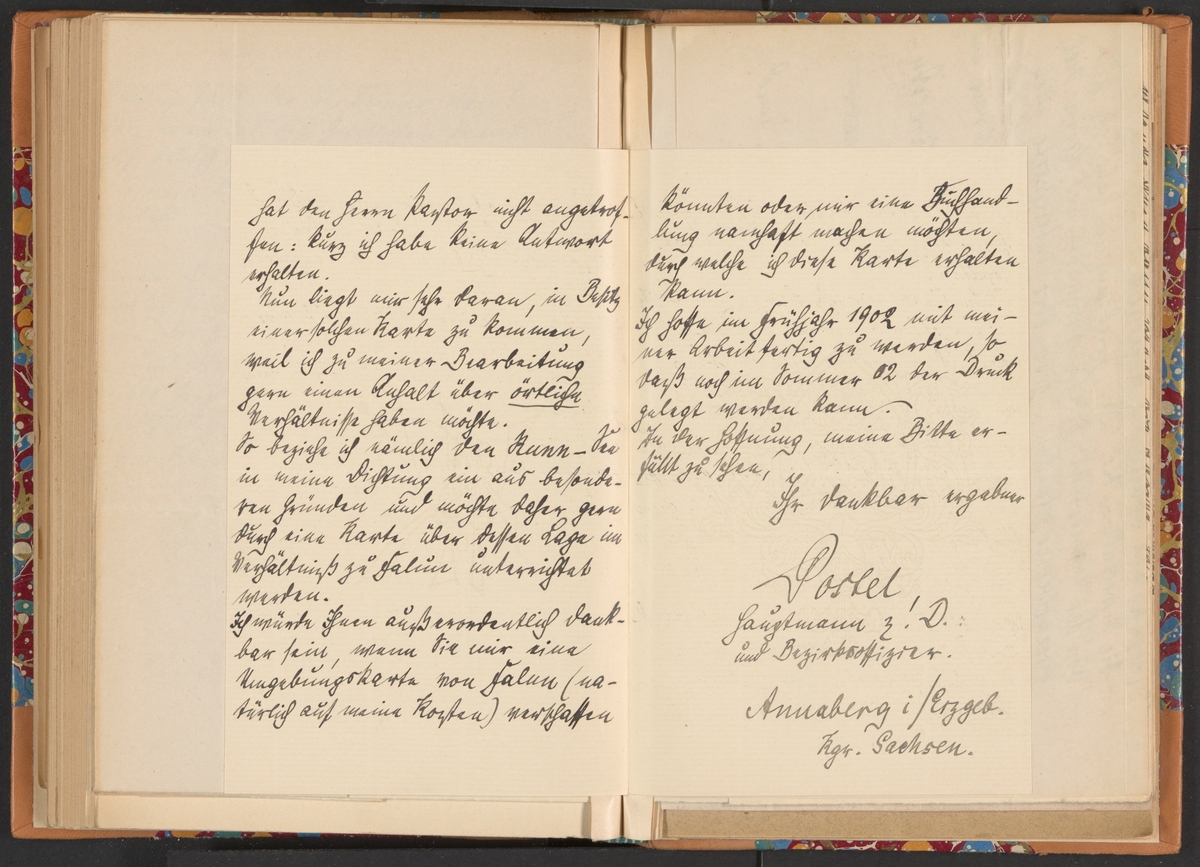 hat den Herrn Pastor nicht angetrof-
fen: kurz ich habe keine Antwort
erhalten.
Nun liegt mir sehr daran, in Besitz
einer solchen Karte zu kommen,
weil ich zu meiner Bearbeitung
gern einen Anhalt über örtliche
Verhältnisse haben möchte.
So beziehe ich nämlich den Runn-See
in meine Dichtung ein aus besonde-
ren Gründen und möchte daher gern
durch eine Karte über dessen Lage im
Verhältniß zu Falun unterrichtet
werden.
Ich würde Ihnen außerordentlich dank-
bar sein, wenn Sie mir eine
Umgebungskarte von Falun (na-
türlich auf meine Kosten) verschaffen
könnten oder mir eine Buchhand-
lung namhaft machen möchten,
durch welche ich diese Karte erhalten
kann.
Ich hoffe im Frühjahr 1902 mit mei-
ner Arbeit fertig zu werden, so
daß noch im Sommer 02 der Druck
gelegt werden kann.
In der Hoffnung, meine Bitte er-
füllt zu sehen,
Ihr dankbar ergebner
Postel,
Hauptmann z. D.
und Bezirksoffizier.
Annaberg i/Erzgeb.
Kgr. Sachsen.